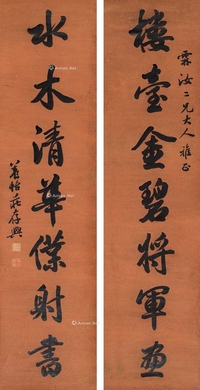 霖汝二兄大人雅正
楼臺金碧将軍畫
水木清華僕射書
莊存興